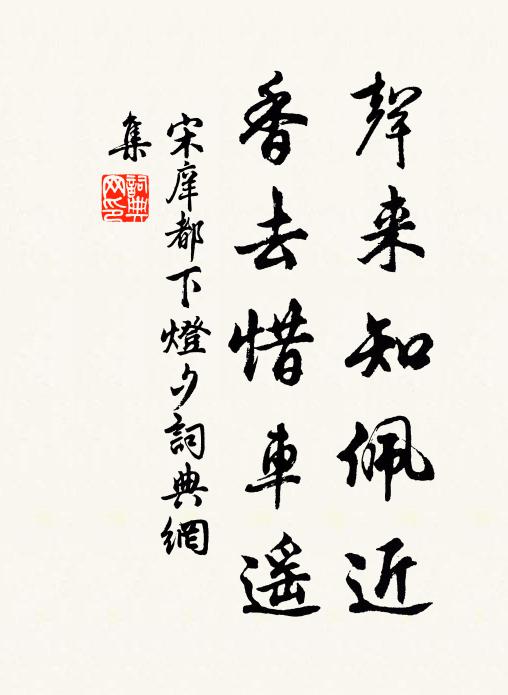 聲来知佩近
香去惜車遥
宋庠都下燈夕詞典網
集
詞典
网印